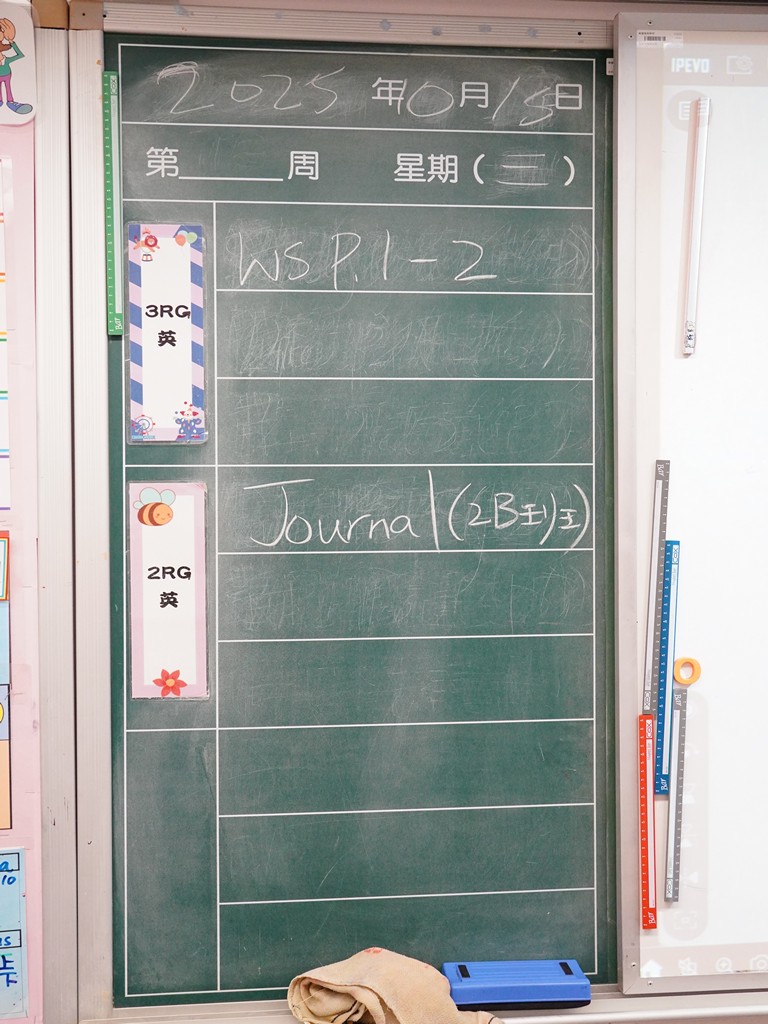 2025年10月15日
第______周 星期(三)
3RG
英
WS P.1-2
2RG
英
Journal (2B王)王)
IPEVO